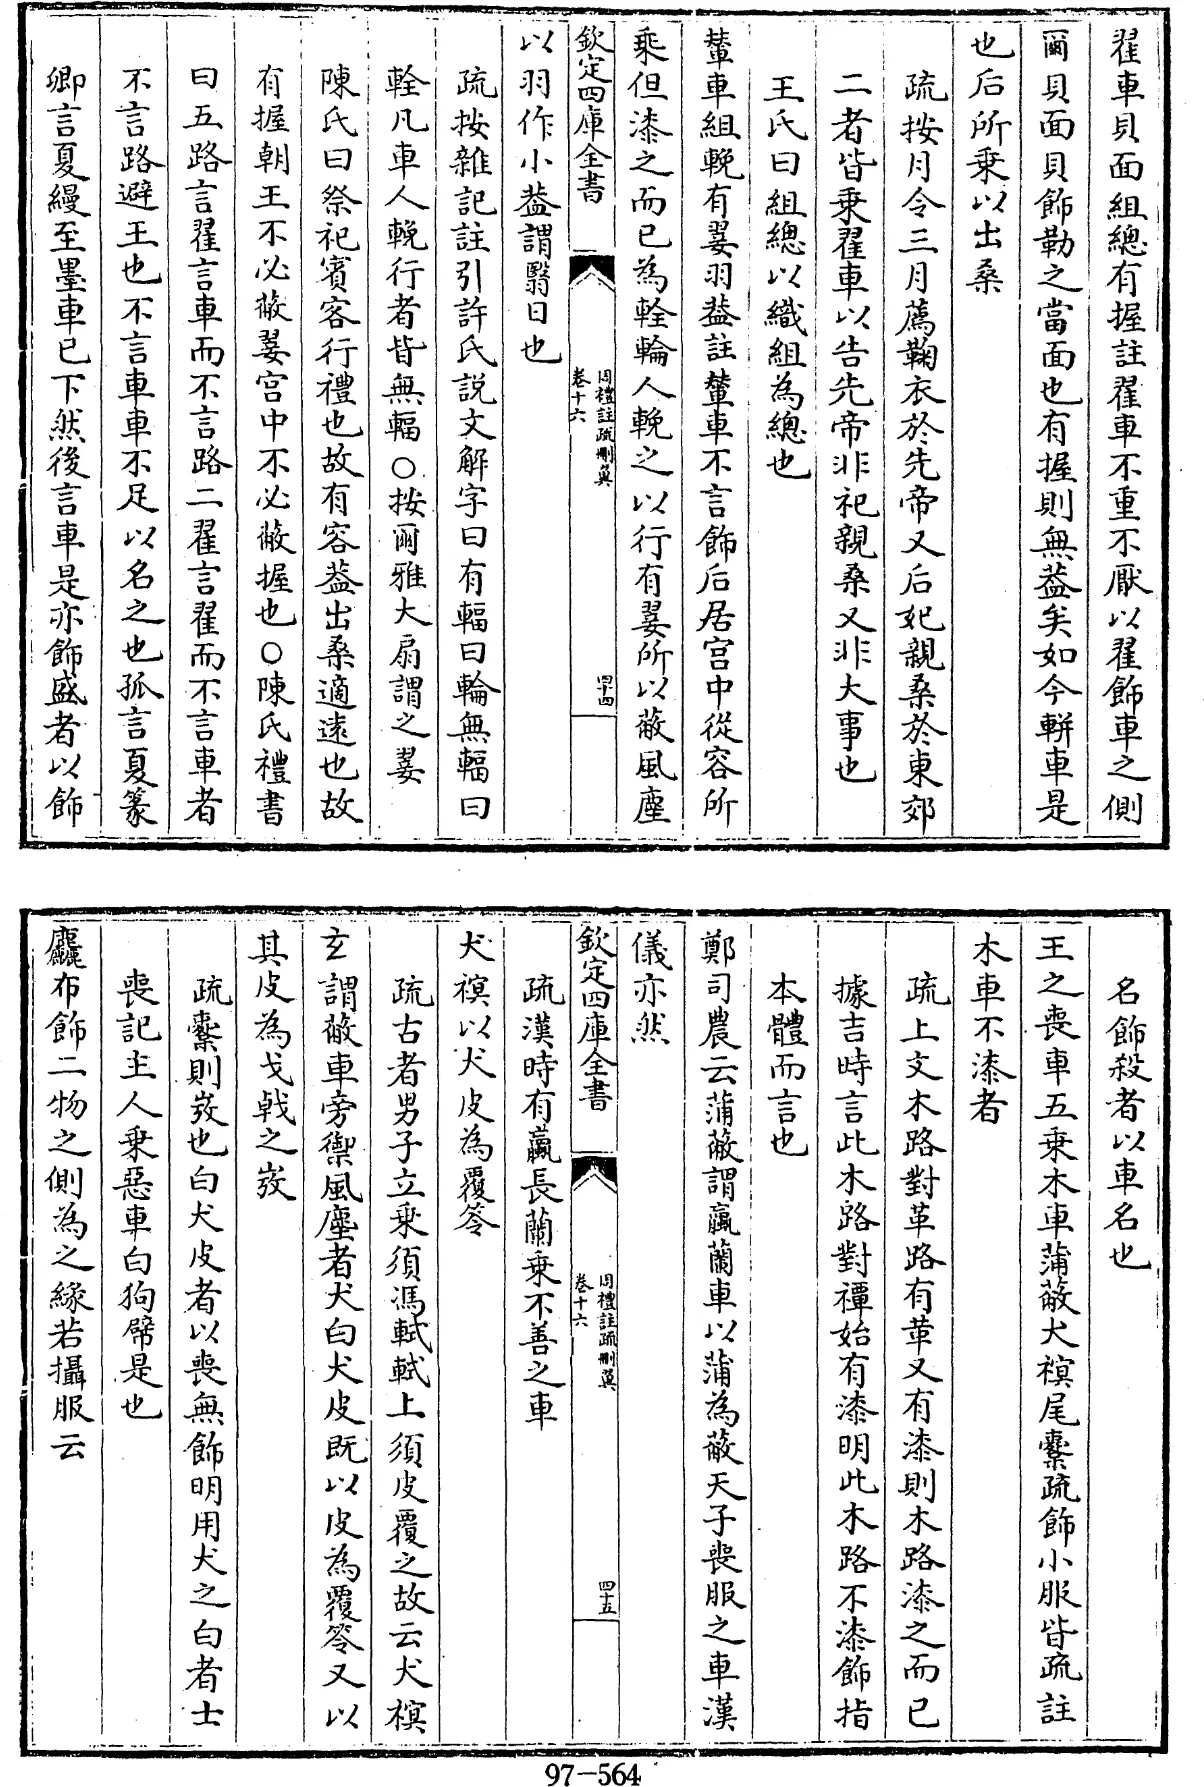 翟車貝面組緫有握註翟車不重不厭以翟飾車之側
爾貝面貝飾勒之當面也有握則無葢矣如今軿車是
也后所乗以出桑
疏按月令三月薦鞠衣於先帝又后妃親桑於東郊
二者皆乗翟車以告先帝非祀親桑又非大事也
王氏曰組緫以織組為緫也
輦車組輓有翣羽葢註輦車不言飾后居宫中從容所
乗但漆之而已為輇輪人輓之以行有翣所以蔽風塵
欽定四庫全書
周禮註疏刪翼
卷十六
四十四
以羽作小葢謂翳日也
疏按雜記註引許氏説文解字曰有輻曰輪無輻曰
輇凡車人輓行者皆無輻○按爾雅大扇謂之翣
陳氏曰祭祀賓客行禮也故有容葢出桑適逺也故
有握朝王不必蔽翣宫中不必蔽握也○陳氏禮書
曰五路言翟言車而不言路二翟言翟而不言車者
不言路避王也不言車車不足以名之也孤言夏篆
卿言夏縵至墨車已下然後言車是亦飾盛者以飾
名飾殺者以車名也
王之喪車五乗木車蒲蔽犬𧜀尾櫜疏飾小服皆疏註
木車不漆者
疏上文木路對革路有革又有漆則木路漆之而已
據吉時言此木路對禫始有漆明此木路不漆飾指
本體而言也
鄭司農云蒲蔽謂臝蘭車以蒲為蔽天子喪服之車漢
儀亦然
欽定四庫全書
周禮註疏刪翼
卷十六
四十五
疏漢時有臝長蘭乗不善之車
犬𧜀以犬皮為覆笭
疏古者男子立乗須馮軾軾上須皮覆之故云犬𧜀
玄謂蔽車旁禦風塵者犬白犬皮既以皮為覆笭又以
其皮為戈戟之弢
疏櫜則弢也白犬皮者以喪無飾明用犬之白者士
喪記主人乗惡車白狗幦是也
麤布飾二物之側為之緣若攝服云
97-564